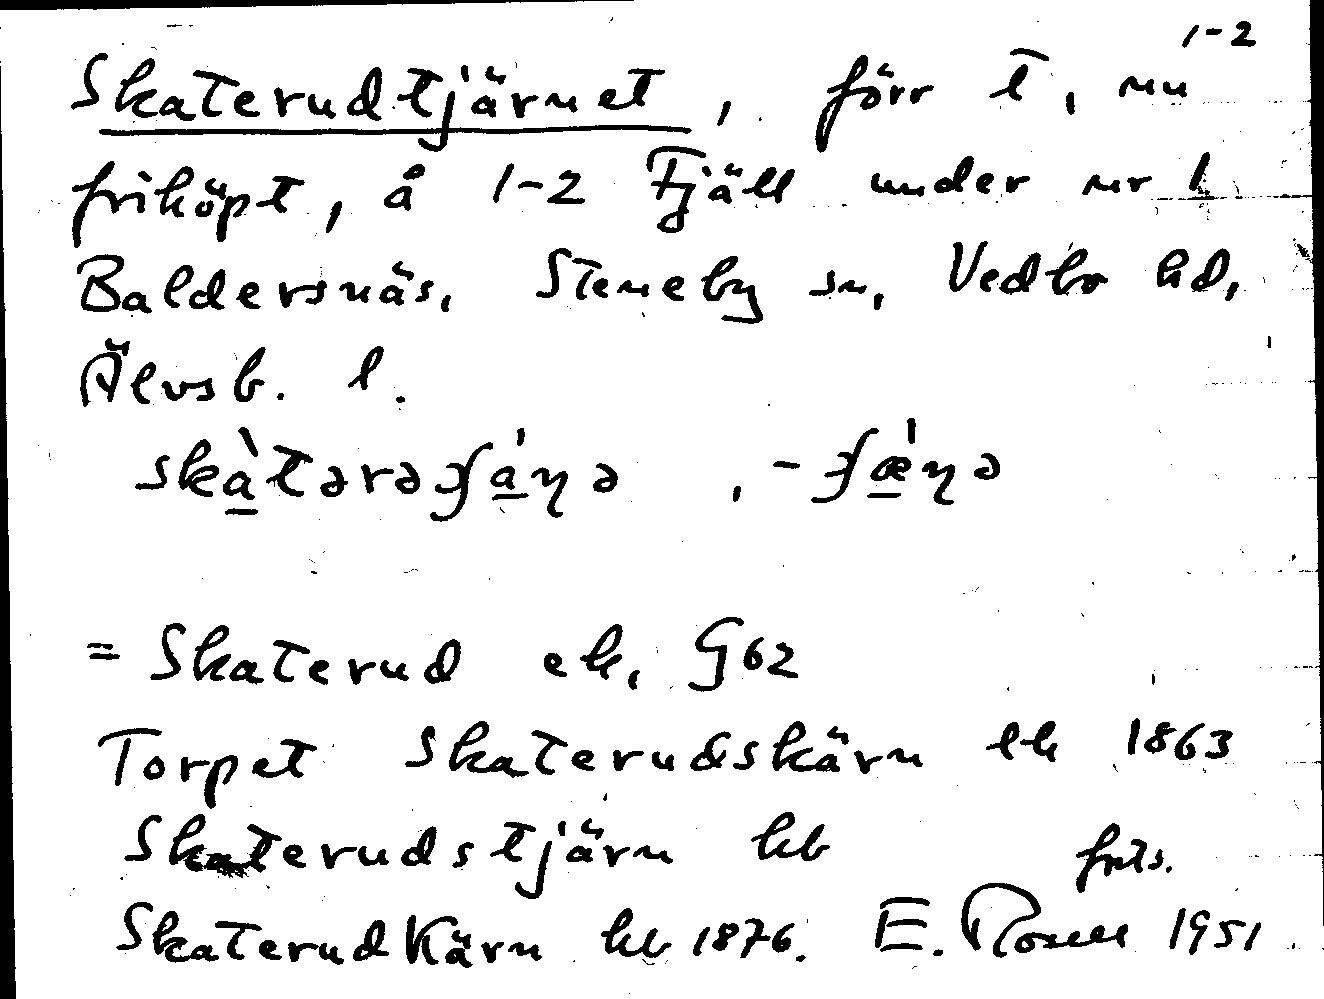 1-2
Skaterudtjärnet, förr t, nu
friköpt, å 1-2 Fjäll under nr 1
Baldersnäs, Steneby sn, Vedbo hd,
Älvsb. l.
= Skaterud ek, G62
Torpet Skaterudskärn lk 1863
Skaterudstjärn kb
forts.
SkaterudKärn kb 1876. E. Rosell 1951